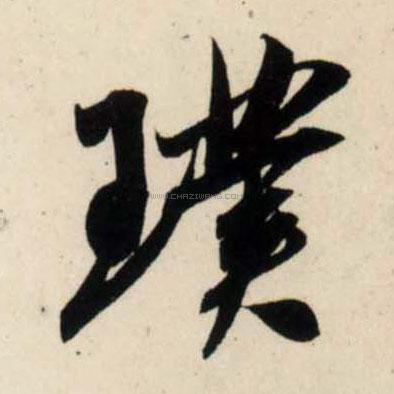 璞
WWW.CHAZIWANG.COM